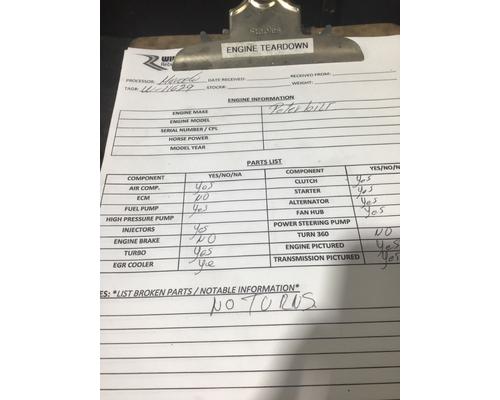 Staples
ENGINE TEARDOWN
PROCESSOR: DATE RECEIVED: RECEIVED FROM:
TAG#: STOCK#: WEIGHT:
ENGINE INFORMATION
ENGINE MAKE Peterbilt
ENGINE MODEL
SERIAL NUMBER / CPL
HORSE POWER
MODEL YEAR
PARTS LIST
COMPONENT YES/NO/NA COMPONENT YES/NO/
AIR COMP. Yes CLUTCH Yes
ECM NO STARTER Yes
FUEL PUMP Yes ALTERNATOR Yes
HIGH PRESSURE PUMP FAN HUB Yes
INJECTORS Yes POWER STEERING PUMP
ENGINE BRAKE NO TURN 360 NO
TURBO Yes ENGINE PICTURED Yes
EGR COOLER Ye TRANSMISSION PICTURED Yes
ES: *LIST BROKEN PARTS / NOTABLE INFORMATION*
NO TURNS